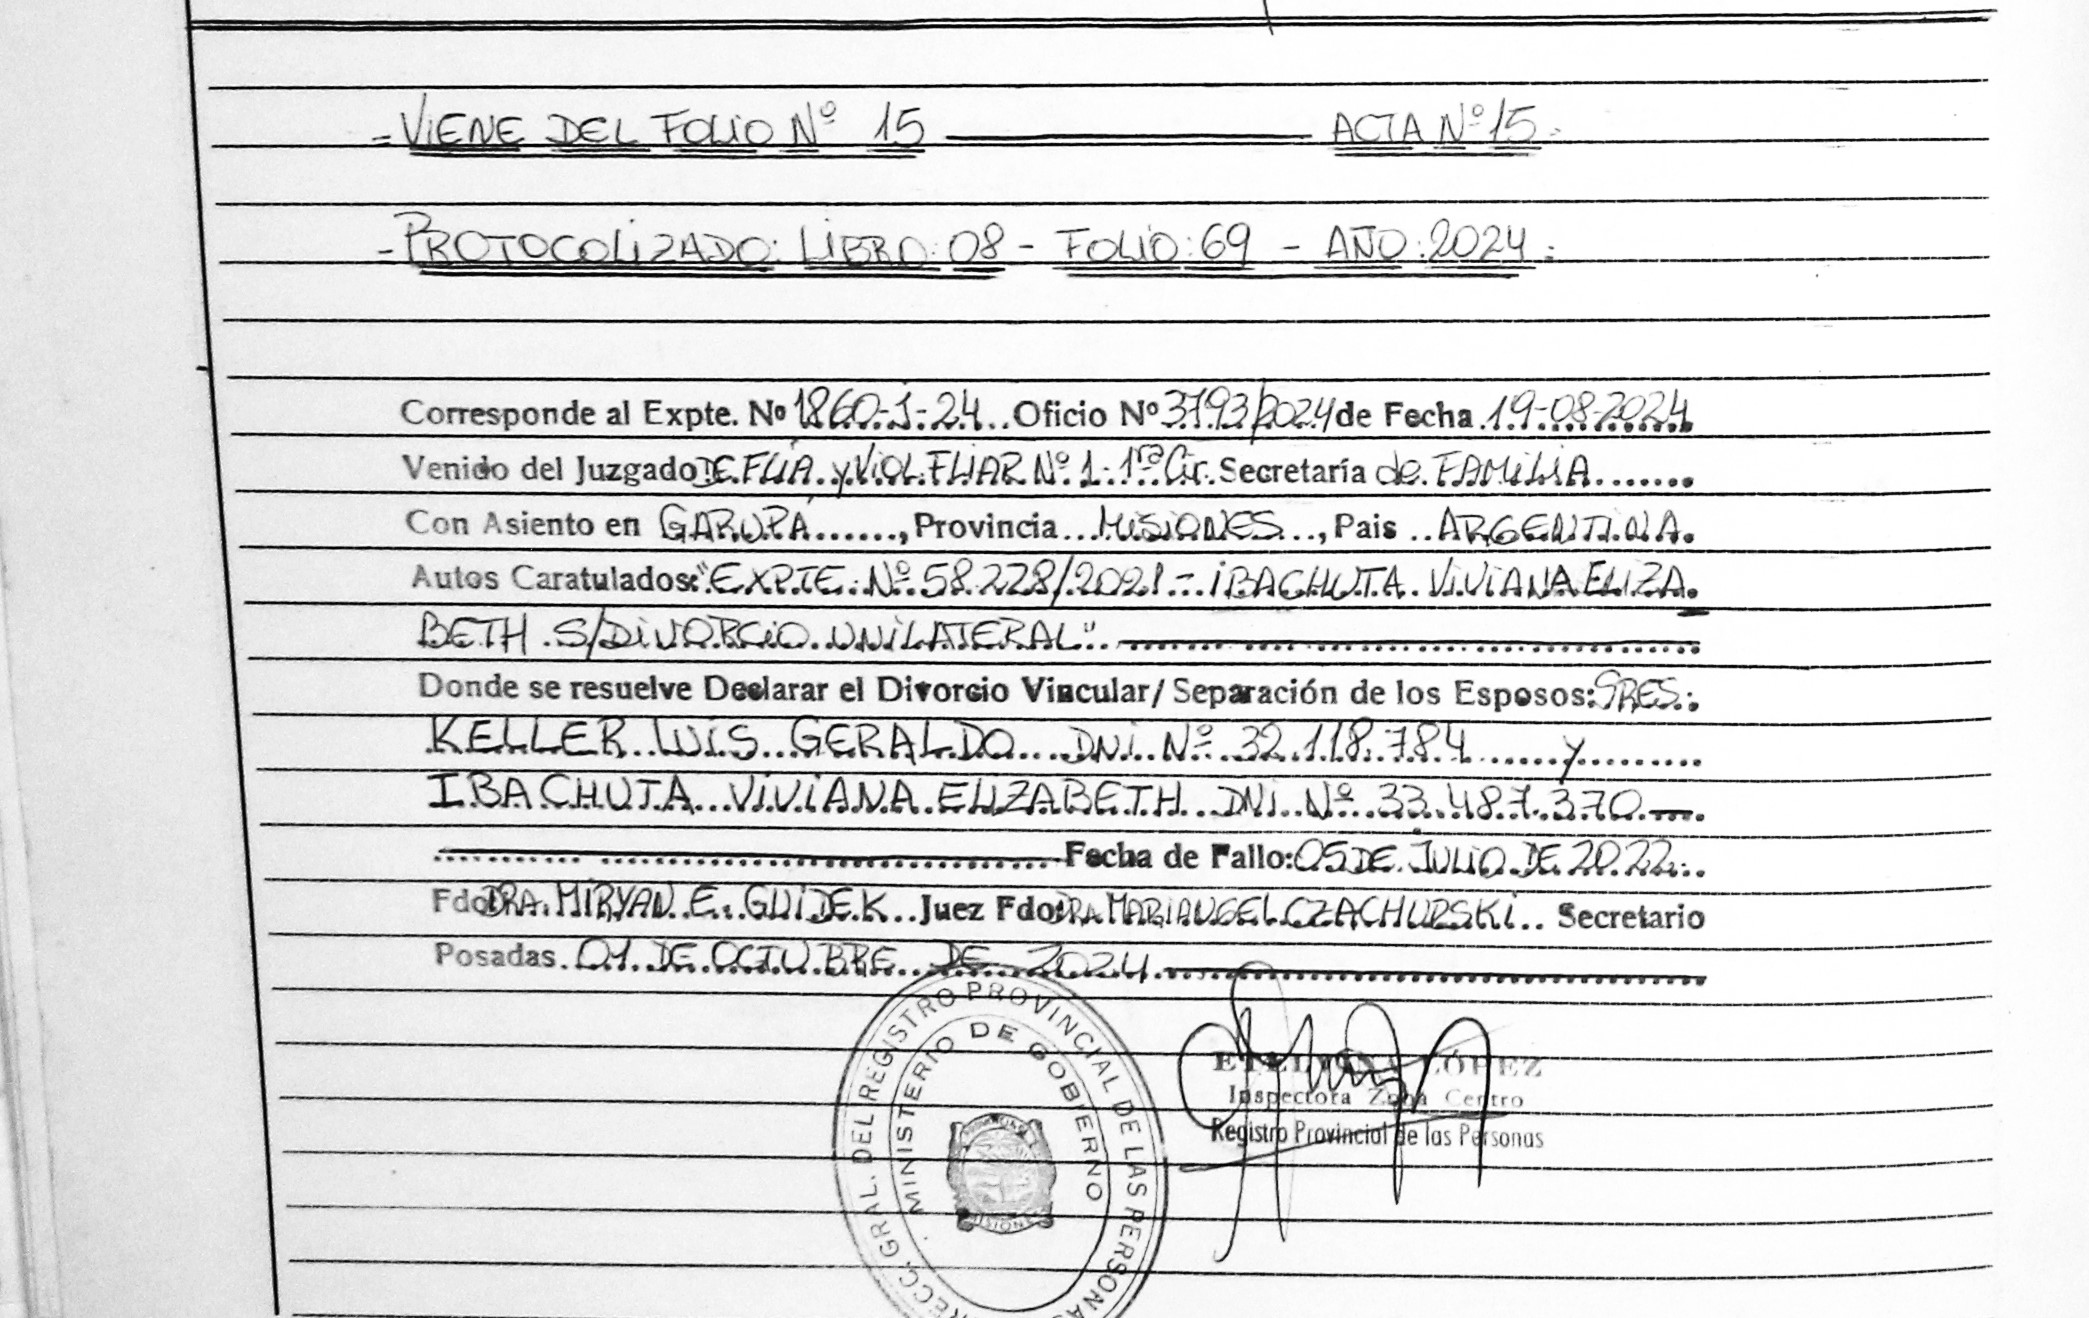 =VIENE DEL FOLIO Nº 15 ———— ACTA Nº 15=
-PROTOCOLIZADO: LIBRO: 08 - FOLIO: 69 - AÑO: 2024=
Corresponde al Expte. Nº 1860-J-24.. Oficio Nº 3793/2024 de Fecha 19-08-2024
Venido del Juzgado DE FLIA. y VIOL. FLIAR Nº 1-1ra Cir. Secretaría de FAMILIA........
Con Asiento en GARUPÁ......, Provincia...MISIONES..., Pais ..ARGENTINA.
Autos Caratulados: "EXPTE. Nº 58228/2021 - IBACHUTA VIVIANA ELIZA
BETH S/DIVORCIO UNILATERAL".
Donde se resuelve Declarar el Divorcio Vincular/ Separación de los Esposos: SRES.:
KELLER LUIS GERALDO DNI Nº 32.118.784 y
IBACHUTA VIVIANA ELIZABETH DNI Nº 33.487.370.—
Fecha de Fallo: 05 DE JULIO DE 2022...
Fdo: DRA. MIRYAN E. GUIDEK.. Juez Fdo: DRA MARIANGEL CZACHURSKI.. Secretario
Posadas. 01 DE OCTUBRE DE 2024.
GRAL. DEL REGISTRO PROVINCIAL DE LAS PERSONAS
MINISTERIO DE GOBIERNO
LÓPEZ
Inspectora Zona Centro
Registro Provincial de las Personas